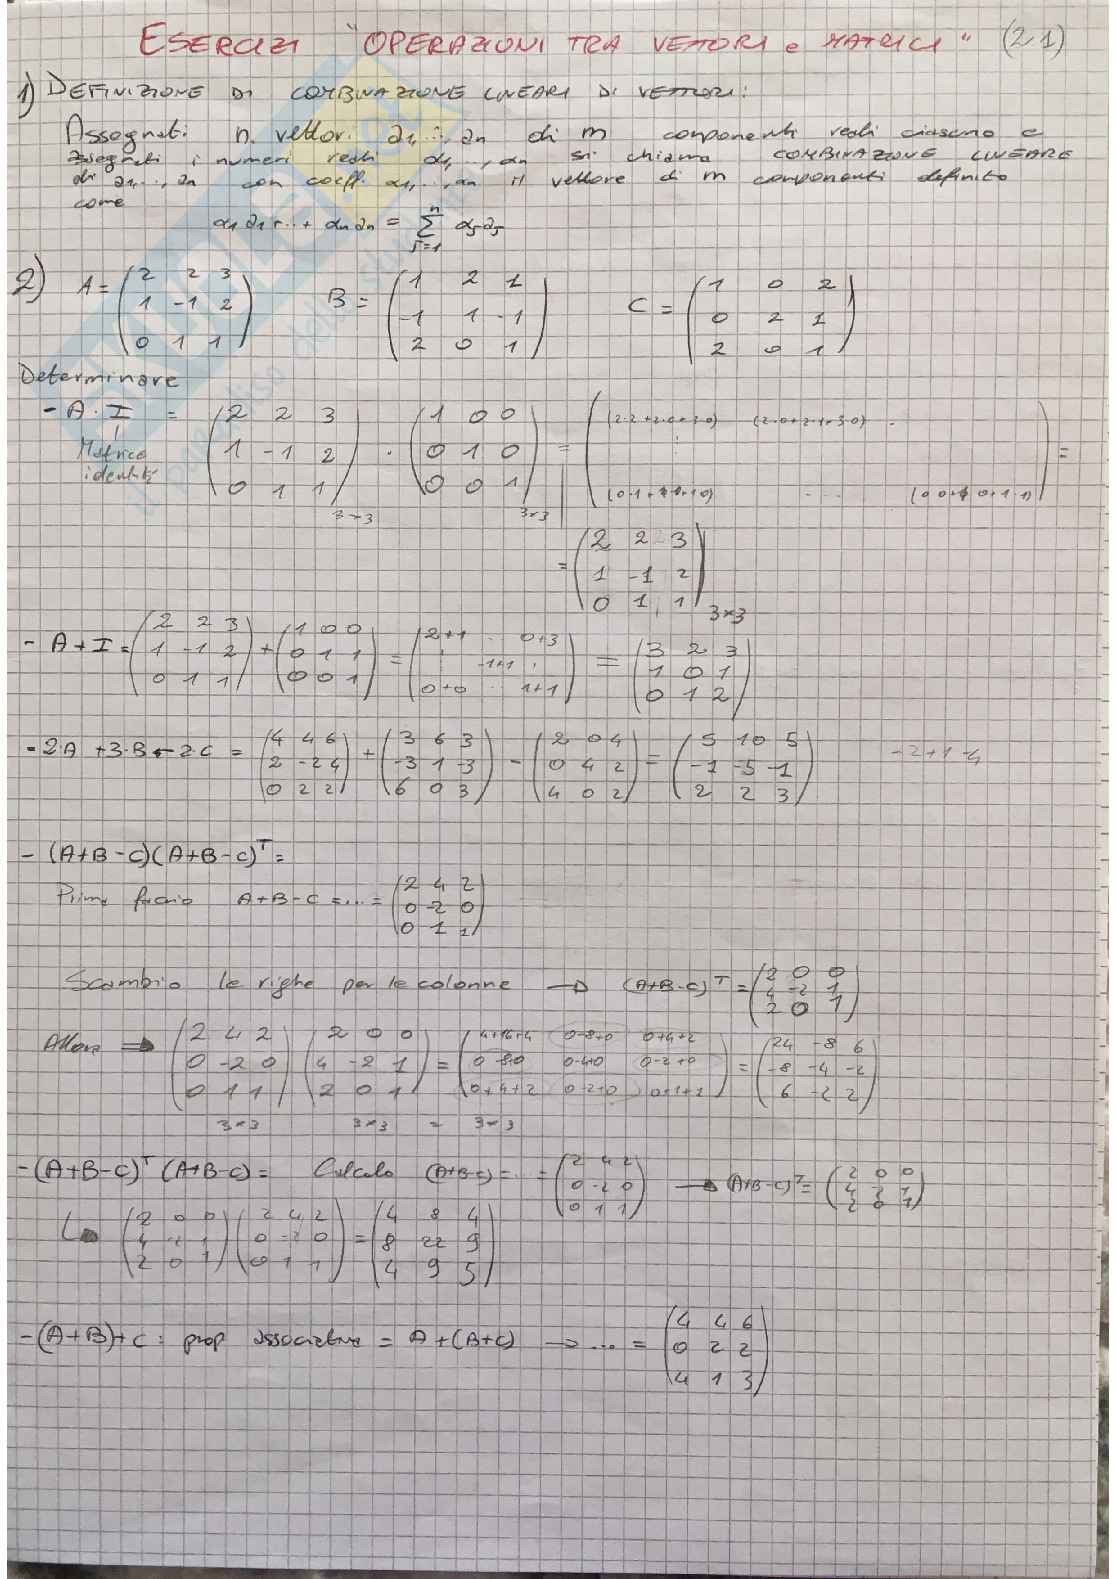 ESERCIZI "OPERAZIONI TRA VETTORI e MATRICI" (2.1)
1) DEFINIZIONE DI COMBINAZIONE LINEARI DI VETTORI:
Assegnati n vettori a1, ..., an di m componenti reali ciascuno e
assegnati i numeri reali α1, ..., αn si chiama COMBINAZIONE LINEARE
di a1, ..., an con coeff. α1, ..., αn il vettore di m componenti definito
come
α1 a1 + ... + αn an = Σ_{j=1}^{n} αj aj
2) A = (2 2 3; 1 -1 2; 0 1 1) B = (1 2 1; -1 1 -1; 2 0 1) C = (1 0 2; 0 2 1; 2 0 1)
Determinare
- A · I = (2 2 3; 1 -1 2; 0 1 1)3×3 · (1 0 0; 0 1 0; 0 0 1)3×3 =
Matrice
identità
= (2 2 3; 1 -1 2; 0 1 1)3×3
- A + I = (2 2 3; 1 -1 2; 0 1 1) + (1 0 0; 0 1 1; 0 0 1) = (2+1 ... 0+3; -1+1; 0+0 ... 1+1) = (3 2 3; 1 0 1; 0 1 2)
- 2·A + 3·B - 2·C = (4 4 6; 2 -2 4; 0 2 2) + (3 6 3; -3 1 -3; 6 0 3) - (2 0 4; 0 4 2; 4 0 2) = (5 10 5; -1 -5 -1; 2 2 3) -2+1-4
- (A+B-C)(A+B-C)^T =
Prima faccio A+B-C = ... = (2 4 2; 0 -2 0; 0 1 1)
Scambio le righe per le colonne → (A+B-C)^T = (2 0 0; 4 -2 1; 2 0 1)
Allora ⇒ (2 4 2; 0 -2 0; 0 1 1) (2 0 0; 4 -2 1; 2 0 1) = (4+16+4 0-8+0 0+4+2; 0-8+0 0-4+0 0-2+0; 0+4+2 0-2+0 0+1+1) = (24 -8 6; -8 -4 -2; 6 -2 2)
3×3 3×3 = 3×3
- (A+B-C)^T (A+B-C) = Calcolo (A+B-C) = ... = (2 4 2; 0 -2 0; 0 1 1) → (A+B-C)^T = (2 0 0; 4 -2 1; 2 0 1)
(2 0 0; 4 -2 1; 2 0 1) (2 4 2; 0 -2 0; 0 1 1) = (4 8 4; 8 22 9; 4 9 5)
- (A+B)+C : prop associativa = A+(B+C) → ... = (4 4 6; 0 2 2; 4 1 3)